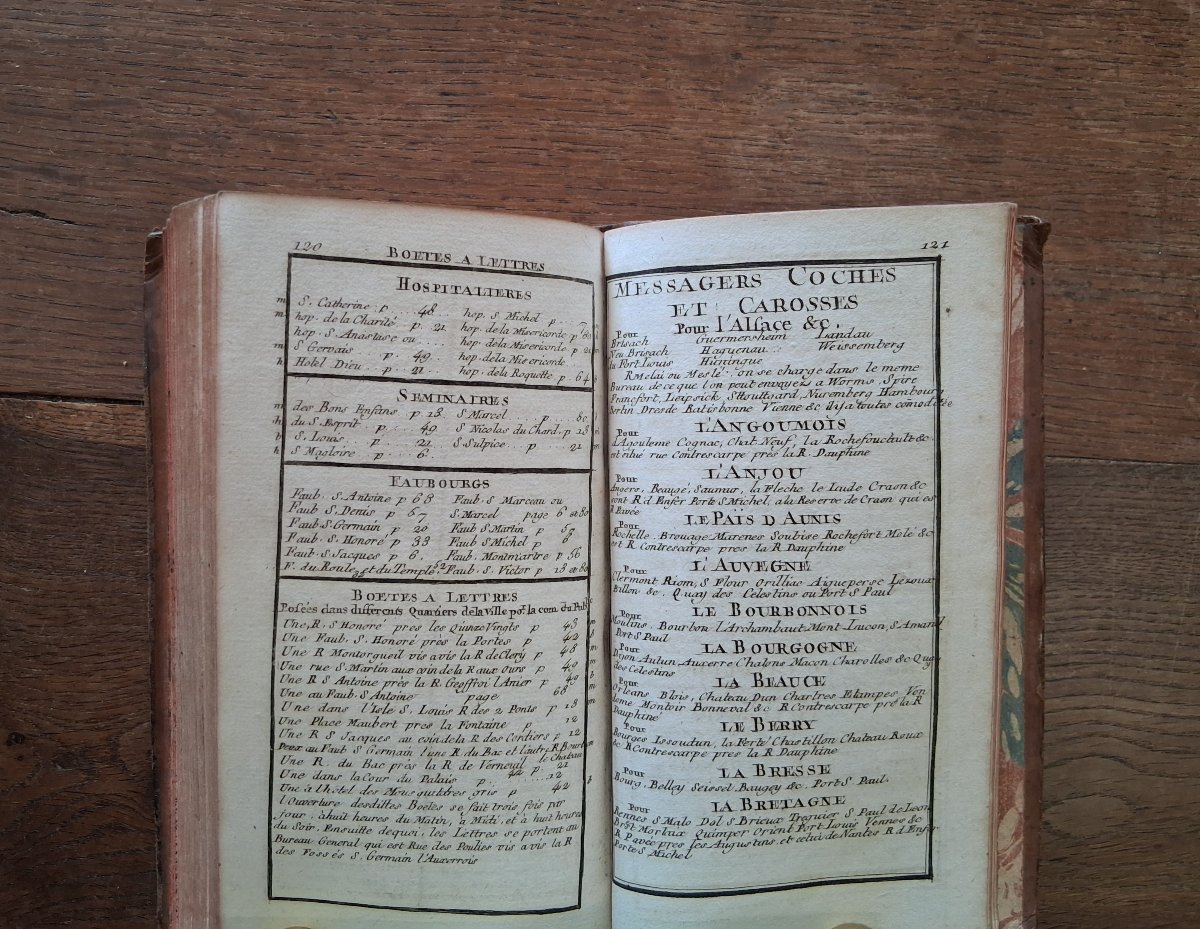 120
BOETES A LETTRES
HOSPITALIERES
m S. Catherine p 48 hop. S. Michel p 7
m hop. de la Charité p. 21 hop. de la Misericorde p 80
hop. S. Anastase ou hop. de la Misericorde p 21
m S Gervais p. 49 hop. de la Misericorde
h Hotel Dieu p 21 hop. de la Roquette p 64
SEMINAIRES
m des Bons Enfans p 13 S. Marcel p 80
h du S. Esprit p. 49 S Nicolas du Chard. p 13
b S. Louis p. 21 S Sulpice p 21
h S Magloire p 6
FAUBOURGS
Faub. S. Antoine p 68 Faub. S Marceau ou
Faub S. Denis p 67 S. Marcel page 6 et 80
Faub. S. Germain p 20 Faub S. Martin p 57
Faub. S. Honoré p 33 Faub S Michel p 6
Faub. S. Jacques p 6. Faub. Montmartre p 56
F. du Roule 35 et du Temple 52 Faub. S. Victor p 13 et 80
BOETES A LETTRES
Posées dans differents Quartiers de la Ville po.r la com. du Public
Une, R, S Honoré pres les Quinze Vingts p 43
Une Faub. S. Honoré près la Portes p 42
Une R Montorgueil vis avis la R de Clery p 48
Une rue S. Martin aux coin de la R aux Ours p 49
Une R S Antoine près la R. Geoffroi l'Anier p 49
Une au Faub. S Antoine page 68
Une dans l'Isle S. Louis R des 2 Ponts p 13
Une Place Maubert pres la Fontaine p 12
Une R S Jacques au coin de la R des Cordiers p 12
Deux au Faub S Germain l'une R du Bac et l'autre R Bourbon
Une R. du Bac près la R de Verneuil le Chateau
Une dans la Cour du Palais p. 12
Une à l'hotel des Mousquetaires gris p 42
l'Ouverture desdittes Boetes se fait trois fois par
jour, à huit heures du Matin, à Midi, et à huit heures
du Soir, Ensuitte dequoi, les Lettres se portent au
Bureau General qui est Rue des Poulies vis avis la R
des Fossés S. Germain l'Auxerrois
121
MESSAGERS COCHES
ET CAROSSES
Pour l'Alsace &c.
Pour
Brisach Guermersheim Landau
Neu Brisach Haguenau Weissemberg
du Fort Louis Huningue
R Melai ou Meslé on se charge dans le meme
Bureau de ce que l'on peut envoyez a Worms, Spire
Francfort, Leipsick, Sttouttgard, Nuremberg Hambourg
Berlin Dresde Ratisbonne Vienne &c il y a toutes comodité
L'ANGOUMOIS
Pour
d'Agouleme Cognac, Chat Neuf, la Rochefouchault &c.
est situé rue Contrescarpe près la R. Dauphine
L'ANJOU
Pour
Angers, Beaugé, Saumur, la Fleche le Lude Craon &c
sont R d Enfer Porte S Michel, a la Reserve de Craon qui est
R Pavée
LE PAÏS D AUNIS
Pour
Rochelle, Brouage Marenes Soubise Rochefort Molé &c
est R Contrescarpe pres la R Dauphine
L'AUVEGNE
Pour
Clermont Riom, S Flour Orilliac Aigueperse Lezoux
Billon &c. Quay des Celestins ou Port S Paul
LE BOURBONNOIS
Pour
Moulins, Bourbon l'Archambaut, Mont Lucon, S. Amand
Port S Paul
LA BOURGOGNE
Pour
Dijon Autun Auxerre Chalons Macon Charolles &c Quay
des Celestins
LA BEAUCE
Pour
Orleans Blois, Chateau Dun Chartres Etampes Ven
dome Montoir Bonneval &c R Contrescarpe pré la R
Dauphine
LE BERRY
Pour
Bourges Issoudun, la Ferté Chastillon Chateau Roux
&c R Contrescarpe pres la R Dauphine
LA BRESSE
Pour
Bourg, Belley Seissel Baugey &c. Port S Paul,
LA BRETAGNE
Pour
Rennes S Malo Dol S Brieux Treguier S Paul de Leon
Brest Morlaix Quimper Orient Port Louis Vennes &c
R Pavée pres les Augustins et celui de Nantes R d Enfer
Porte S Michel